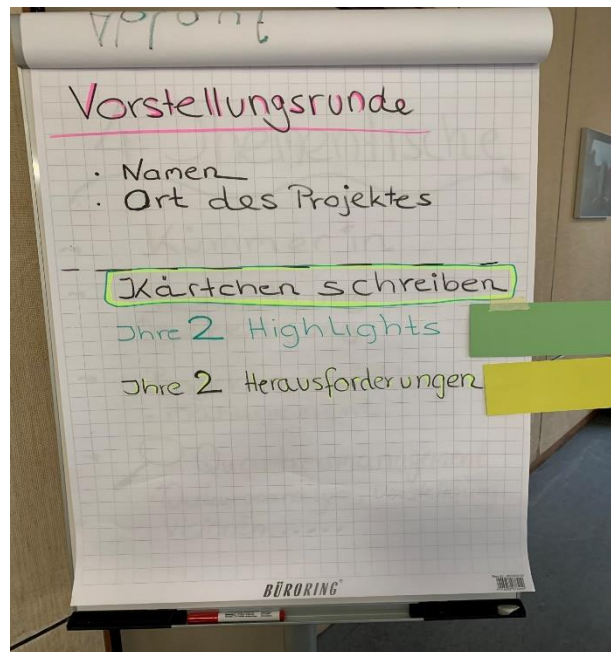 Vorstellungsrunde
· Namen
· Ort des Projektes
Kärtchen schreiben
Ihre 2 Highlights
Ihre 2 Herausforderungen
BÜRORING